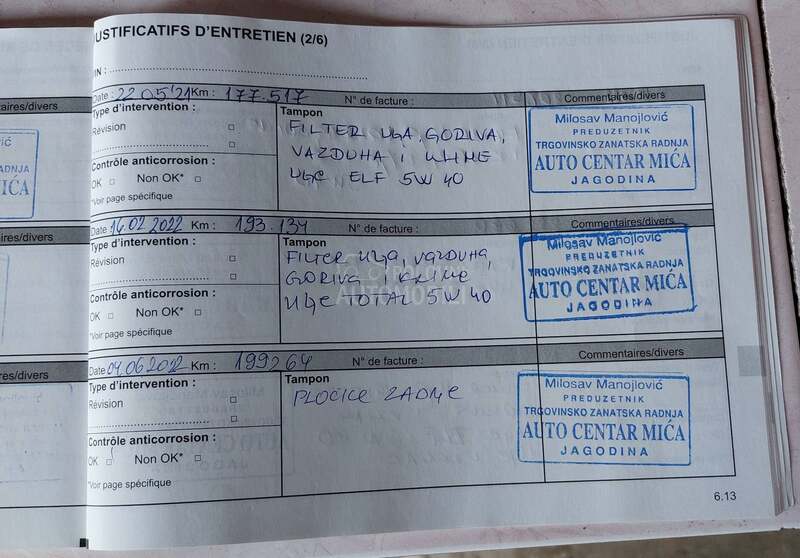 JUSTIFICATIFS D'ENTRETIEN (2/6)
IN :
aires/divers
Date : 22 05'21 Km : 177.517 N° de facture : Commentaires/divers
Type d'intervention :
Révision
Tampon
FILTER ULJA, GORIVA,
VAZDUHA I KLIME
ULJE ELF 5W 40
Milosav Manojlović
PREDUZETNIK
TRGOVINSKO ZANATSKA RADNJA
AUTO CENTAR MIĆA
JAGODINA
Contrôle anticorrosion :
OK Non OK*
*Voir page spécifique
ires/divers
Date 14.02 2022 Km : 193.134 N° de facture : Commentaires/divers
Type d'intervention :
Révision
Tampon
FILTER ULJA, VAZDUHA,
GORIVA I KLIME
ULJE TOTAL 5W 40
Milosav Manojlović
PREDUZETNIK
TRGOVINSKO ZANATSKA RADNJA
AUTO CENTAR MIĆA
JAGODINA
Contrôle anticorrosion :
OK Non OK*
*Voir page spécifique
es/divers
Date 04.06 2022 Km : 199264 N° de facture : Commentaires/divers
Type d'intervention :
Révision
Tampon
PLOČICE ZADNJE
Milosav Manojlović
PREDUZETNIK
TRGOVINSKO ZANATSKA RADNJA
AUTO CENTAR MIĆA
JAGODINA
Contrôle anticorrosion :
OK Non OK*
*Voir page spécifique
6.13